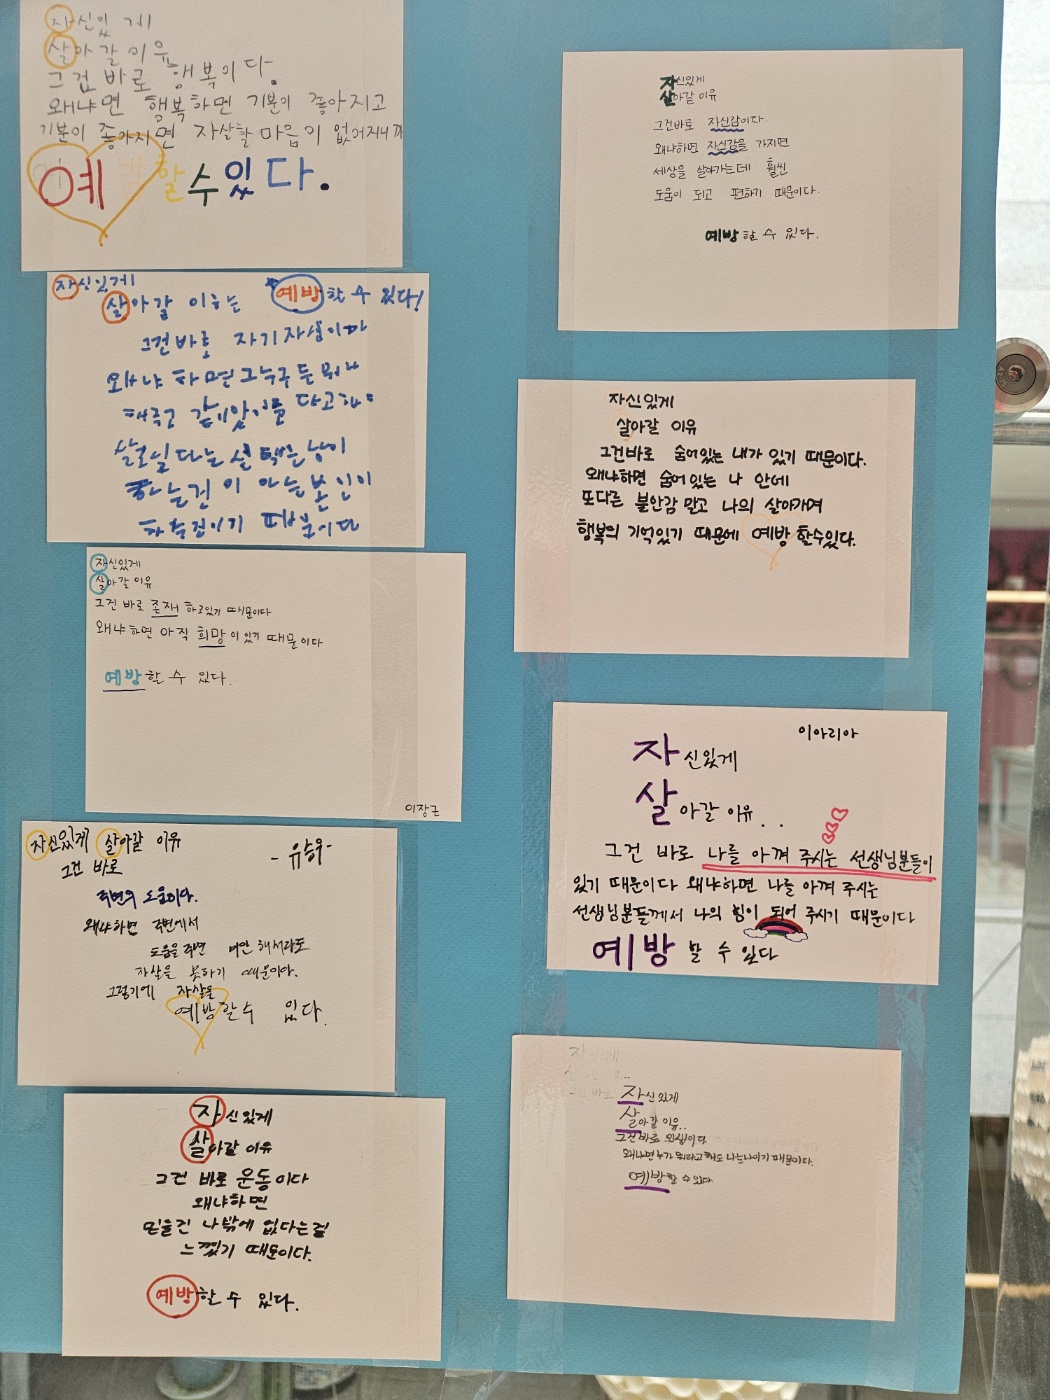 자신있게
살아갈 이유
그건 바로 행복이다.
왜냐면 행복하면 기분이 좋아지고
기분이 좋아지면 자살할 마음이 없어지니까
예방할 수 있다.
자신있게
살아갈 이유는 예방할 수 있다!
그건 바로 자기자신이다
왜냐하면 그누구든 뭐나
해주고
살고싶다는 선택은 남이
하는건이 아는 본인이
하는것이기 때문이다
자신있게
살아갈 이유
그건 바로 존재하고있기 때문이다
왜냐하면 아직 희망이 있기 때문이다
예방할 수 있다.
이장근
자신있게 살아갈 이유
- 유승우 -
그건 바로
주변의 도움이다.
왜냐하면 주변에서
도움을 주면 해서라도
자살을 못하기 때문이다.
그렇기에 자살을
예방할수 있다.
자신있게
살아갈 이유
그건 바로 운동이다
왜냐하면
믿을건 나밖에 없다는걸
느꼈기 때문이다.
예방할 수 있다.
자신있게
살아갈 이유
그건바로 자신감이다.
왜냐하면 자신감을 가지면
세상을 살아가는데 훨씬
도움이 되고 편하기 때문이다.
예방할 수 있다.
자신있게
살아갈 이유
그건바로 숨어있는 내가 있기 때문이다.
왜냐하면 숨어있는 나 안에
또다른 불안감 말고 나의 살아가며
행복의 기억있기 때문에 예방할수있다.
이아리아
자신있게
살아갈 이유..
그건 바로 나를 아껴 주시는 선생님분들이
있기 때문이다 왜냐하면 나를 아껴 주시는
선생님분들께서 나의 힘이 되어 주시기 때문이다
예방 할 수 있다
자신있게
살아갈 이유..
그건바로 인생이다
왜냐면 누가 뭐라고해도 나는나이기 때문이다.
예방할 수 있다